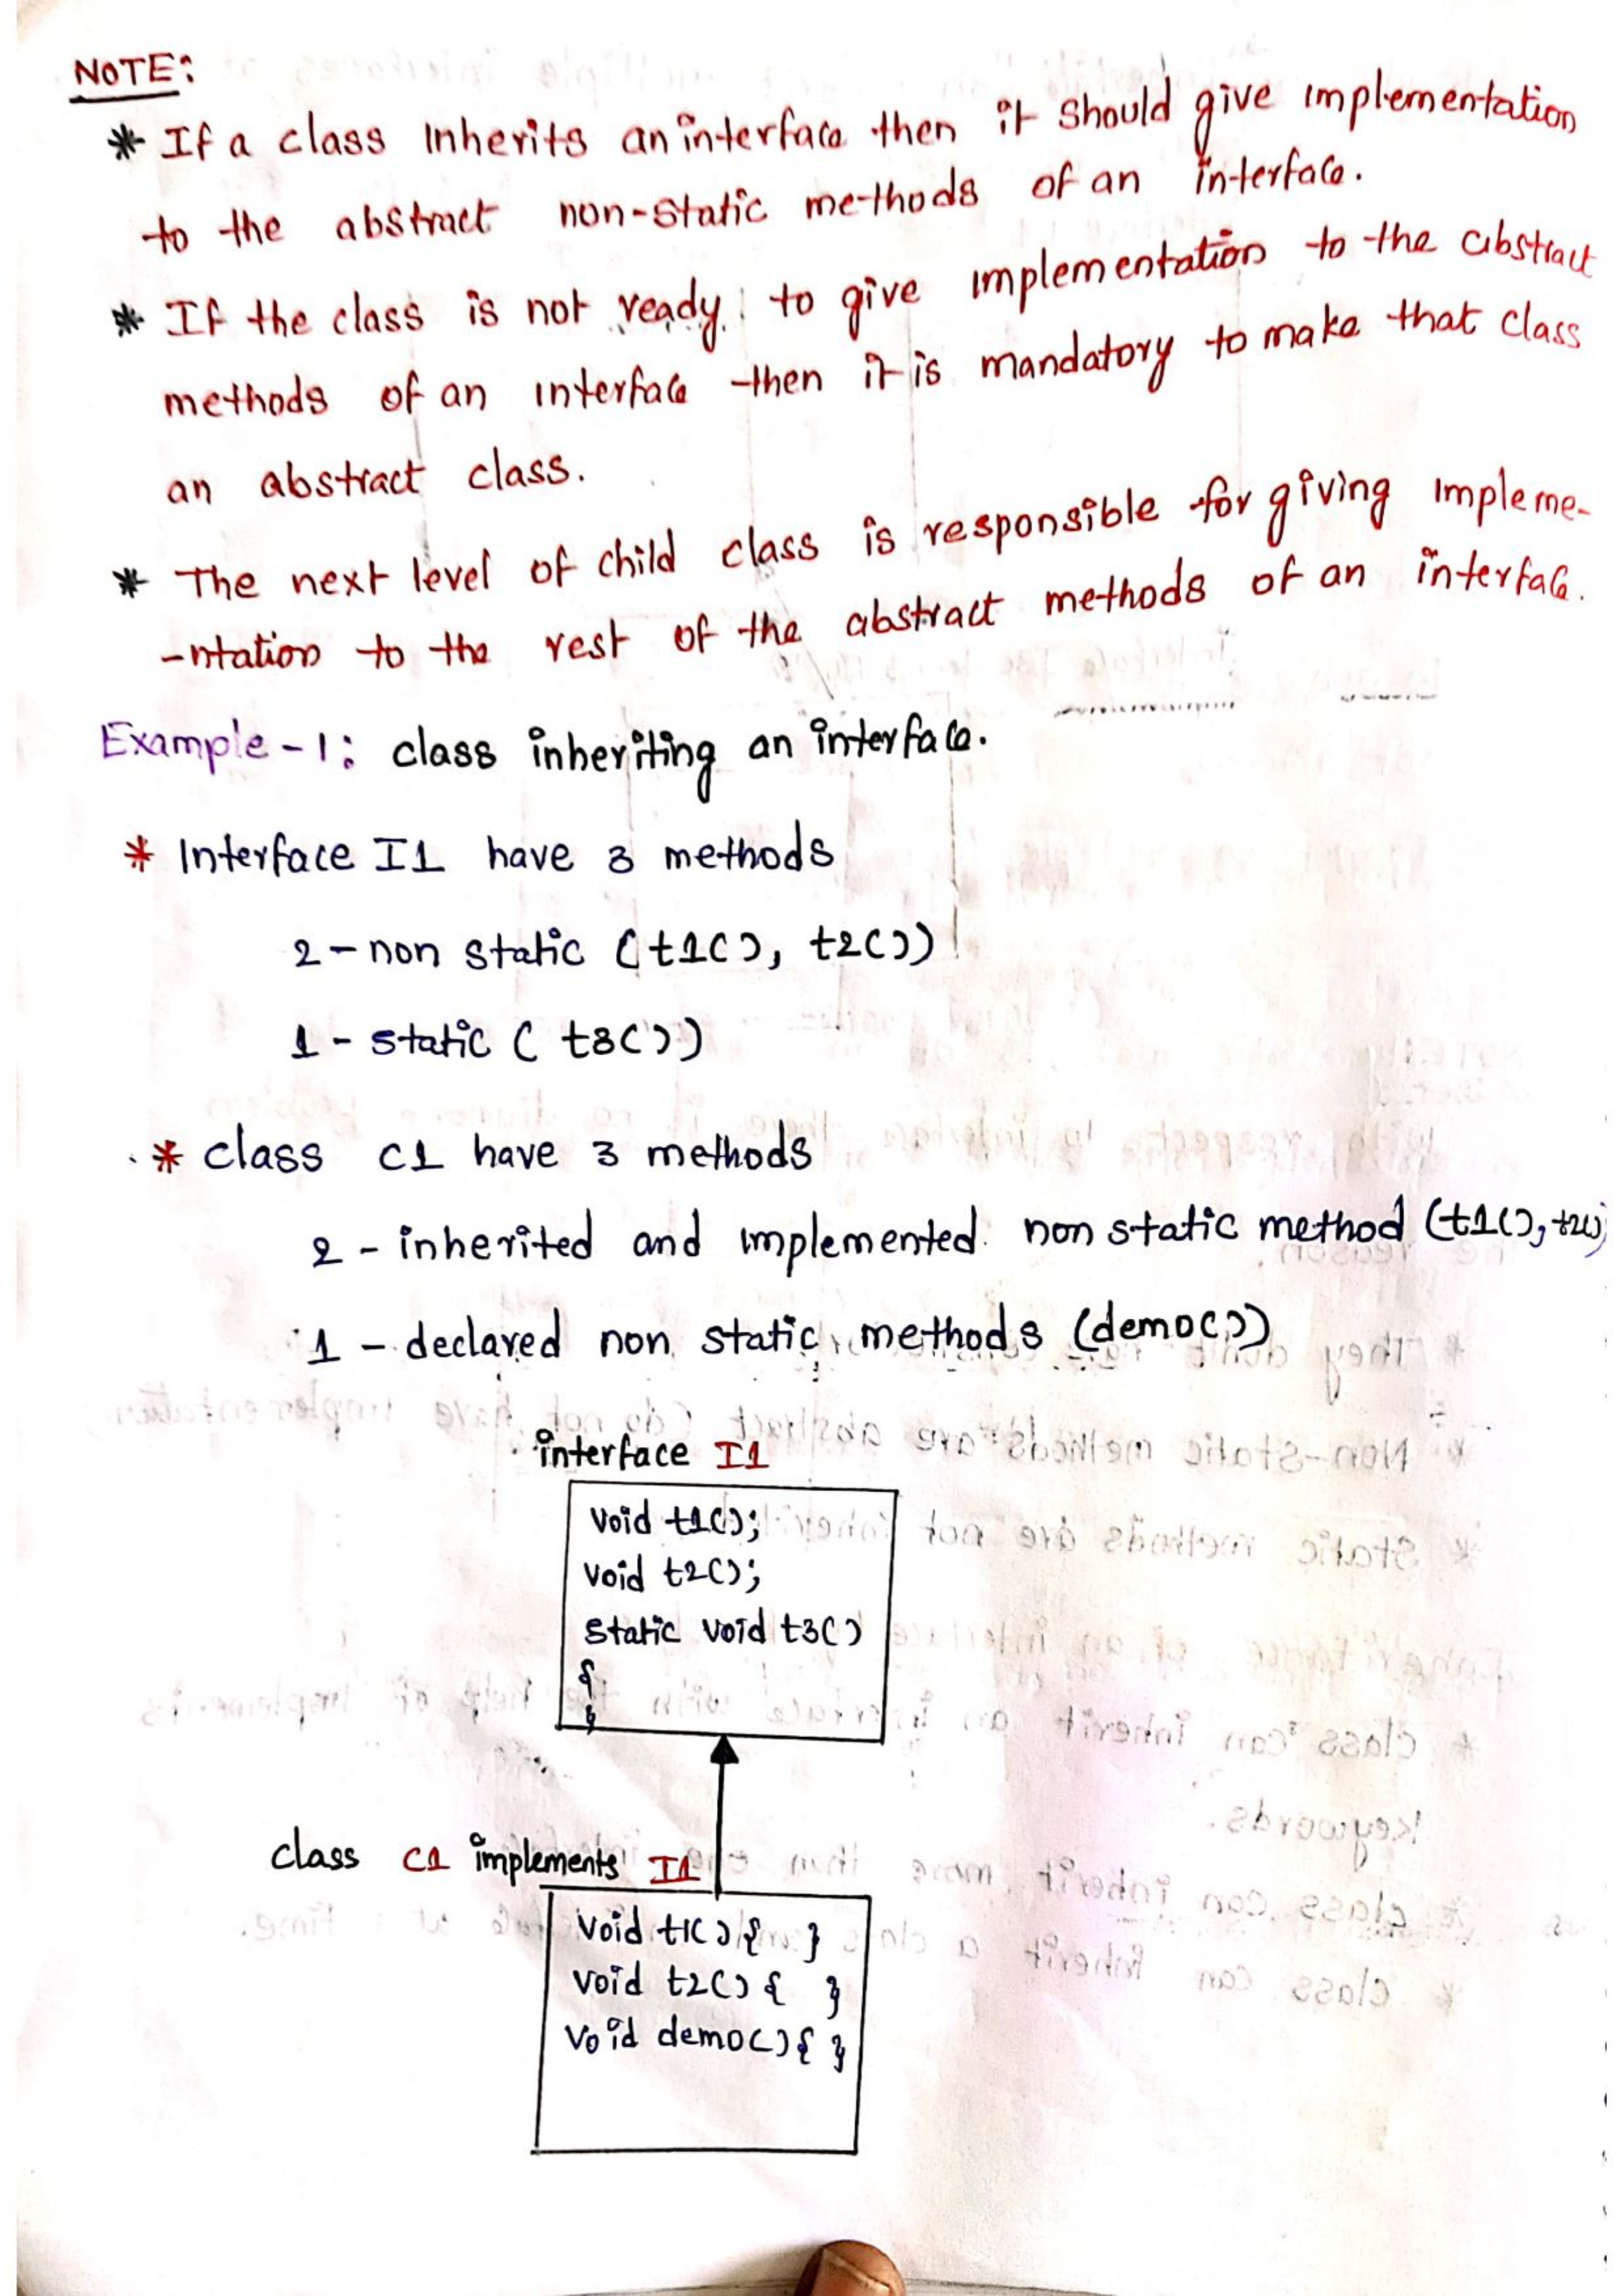 NOTE:
* If a class Inherits an interface then it should give implementation
to the abstract non-static methods of an interface.
* If the class is not ready to give implementation to the abstract
methods of an interface then it is mandatory to make that class
an abstract class.
* The next level of child class is responsible for giving impleme-
-ntation to the rest of the abstract methods of an interface.
Example-1: class inheriting an interface.
* Interface I1 have 3 methods
2-non static (t1(), t2())
1-static (t3())
* class C1 have 3 methods
2-inherited and implemented non static method (t1(), t2()
1-declared non static methods (demo())
interface I1
void t1();
void t2();
static void t3()
{
}
class C1 implements I1
void t1(){ }
void t2(){ }
void demo(){ }